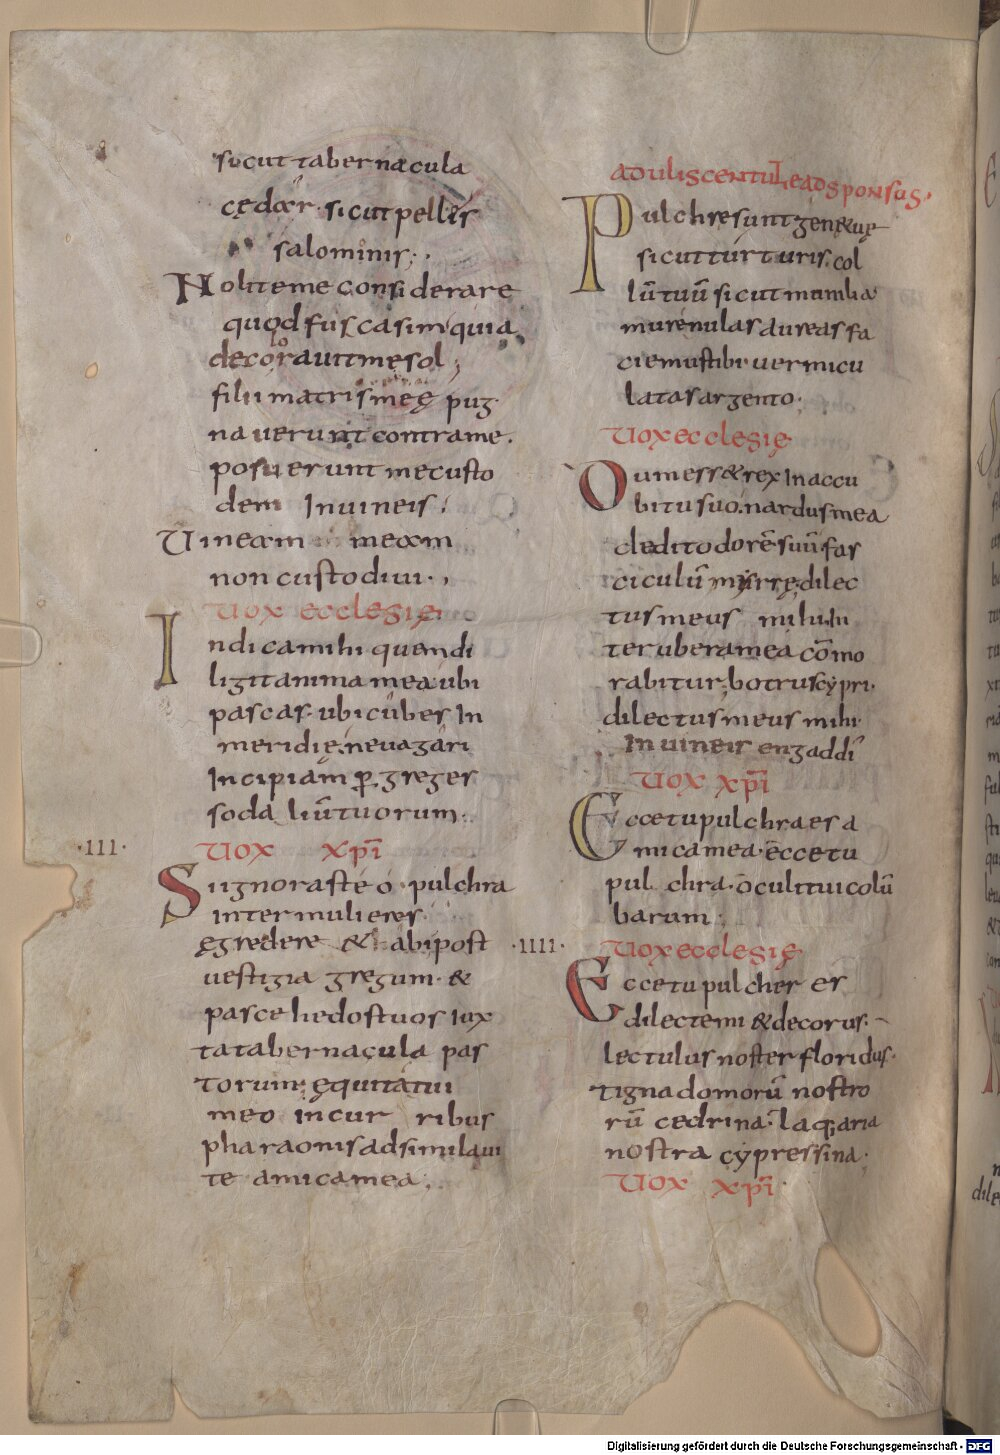 sicut tabernacula
cędar · sicut pellis
salominis ;
Nolite me considerare
quod fusca sim quia
decoloravit me sol ;
filii matris meę pug
naverunt contra me .
posuerunt me custo
dem In vineis ;
Uineam meam
non custodivi · ,
Uox ecclesię
Indica mihi quem di
ligit anima mea ubi
pascas · ubi cubes In
meridię ; ne vagari
Incipiam ꝑ greges
sodaliū tuorum ·
·III· Uox xp̄i
Si ignoras te o · pulchra
inter mulieres ·
ęgredere & abi post
vestigia gregum · &
pasce hedos tuos Iux
ta tabernacula pas
torum ; ęquitatui
meo in cur ribus
pharaonis adsimilavi
te amica mea ;
aduliscentuleadsponsus ·
Pulchre sunt gen& uę
sicut turturis · col
lū tuū sicut munilia
murenulas aureas fa
ciemus tibi vermicu
latas argento ·
Uox ecclesię
Dum ess& rex In accu
bitu suo · nardus mea
dedit odorē suū fas
ciculū myrrę dilec
tus meus mihi In
ter ubera mea cōmo
rabitur ; botrus cypri ·
dilectus meus mihi ·
In vineis engaddi
Uox xp̄i
Ecce tu pulchra es a
mica mea · ecce tu
pul chra · oculi tui colū
barum ;
·IIII· Uox ecclesię
Ecce tu pulcher es
dilecte mi & decorus ·
lectulus noster floridus ·
tigna domorū nostro
rū cedrina · laq;aria
nostra cypressina ·
Uox xp̄i ·
Digitalisierung gefördert durch die Deutsche Forschungsgemeinschaft - DFG